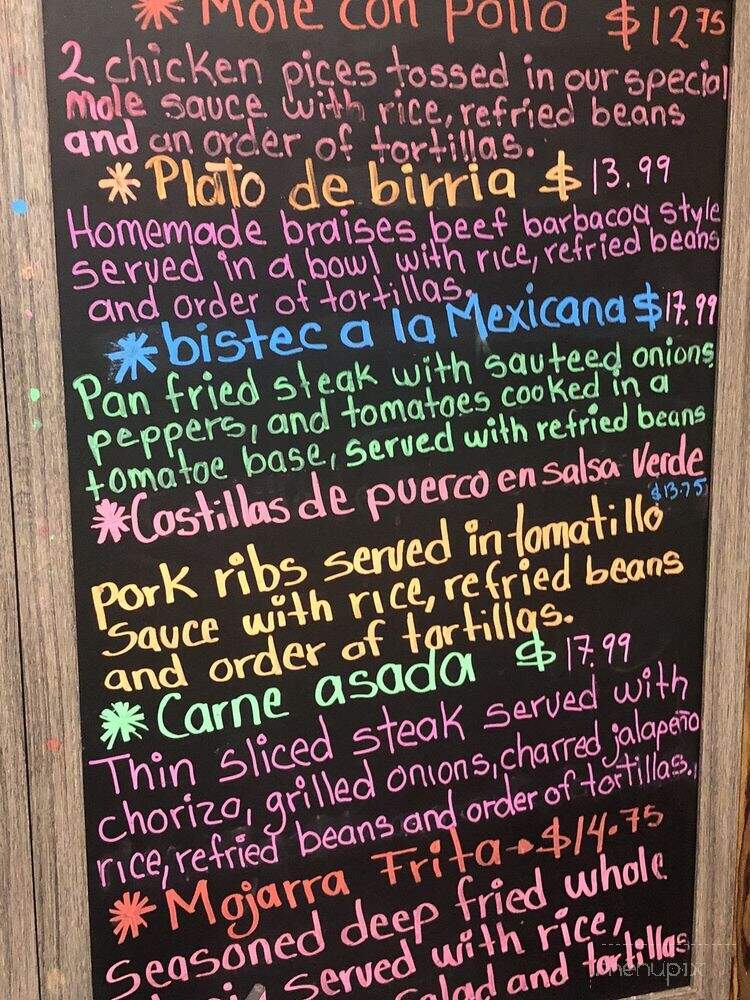 * Mole con pollo $12.75
2 chicken pices tossed in our special
mole sauce with rice, refried beans
and an order of tortillas.
* Plato de birria $13.99
Homemade braises beef barbacoa style
served in a bowl with rice, refried beans
and order of tortillas.
* bistec a la Mexicana $17.99
Pan fried steak with sauteed onions
peppers, and tomatoes cooked in a
tomatoe base, served with refried beans
* Costillas de puerco en salsa Verde
$13.75
Pork ribs served in tomatillo
sauce with rice, refried beans
and order of tortillas.
* Carne asada $17.99
Thin sliced steak served with
chorizo, grilled onions, charred jalapeño
rice, refried beans and order of tortillas.
* Mojarra Frita → $14.75
Seasoned deep fried whole
served with rice,
salad and tortillas
menupix